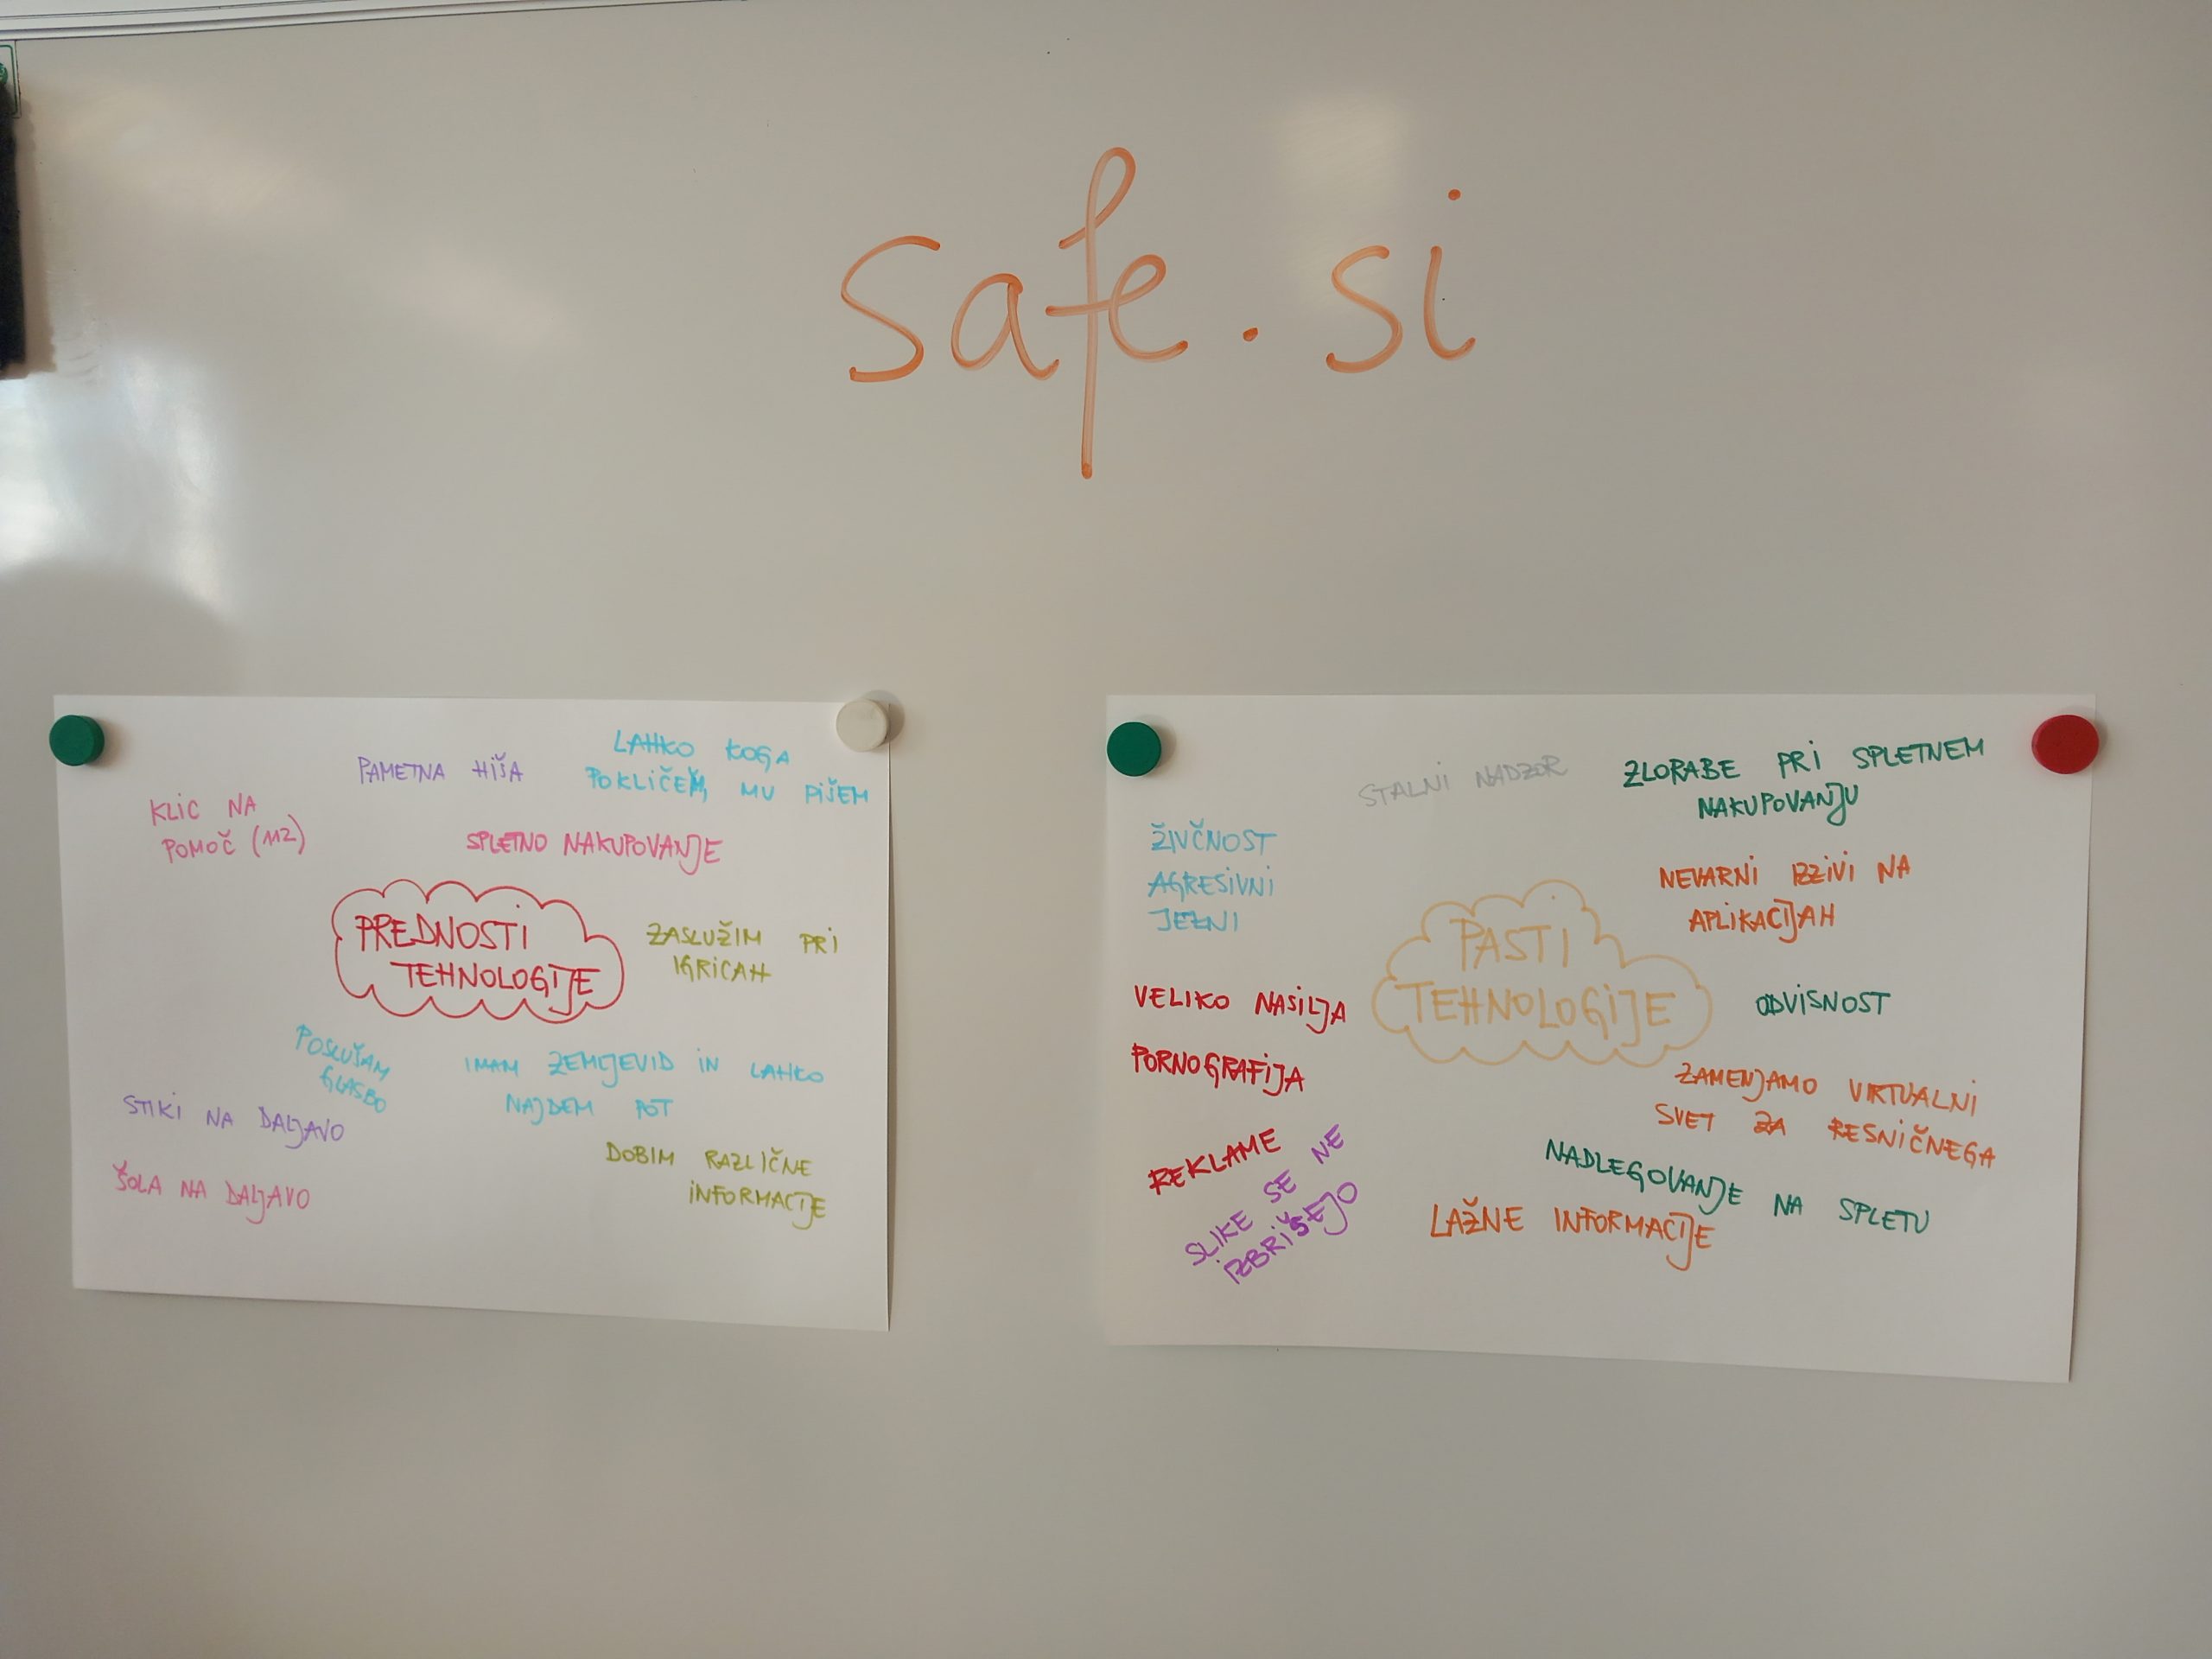 safe.si
PAMETNA HIŠA
LAHKO KOGA
POKLIČEM, MU PIŠEM
KLIC NA
POMOČ (112)
SPLETNO NAKUPOVANJE
PREDNOSTI
TEHNOLOGIJE
ZASLUŽIM PRI
IGRICAH
POSLUŠAM
GLASBO
IMAM ZEMLJEVID IN LAHKO
NAJDEM POT
STIKI NA DALJAVO
DOBIM RAZLIČNE
INFORMACIJE
ŠOLA NA DALJAVO
STALNI NADZOR
ZLORABE PRI SPLETNEM
NAKUPOVANJU
ŽIVČNOST
AGRESIVNI
JEZNI
NEVARNI IZZIVI NA
APLIKACIJAH
PASTI
TEHNOLOGIJE
VELIKO NASILJA
ODVISNOST
PORNOGRAFIJA
ZAMENJAMO VIRTUALNI
SVET ZA RESNIČNEGA
REKLAME
NADLEGOVANJE NA SPLETU
SLIKE SE NE
IZBRIŠEJO
LAŽNE INFORMACIJE